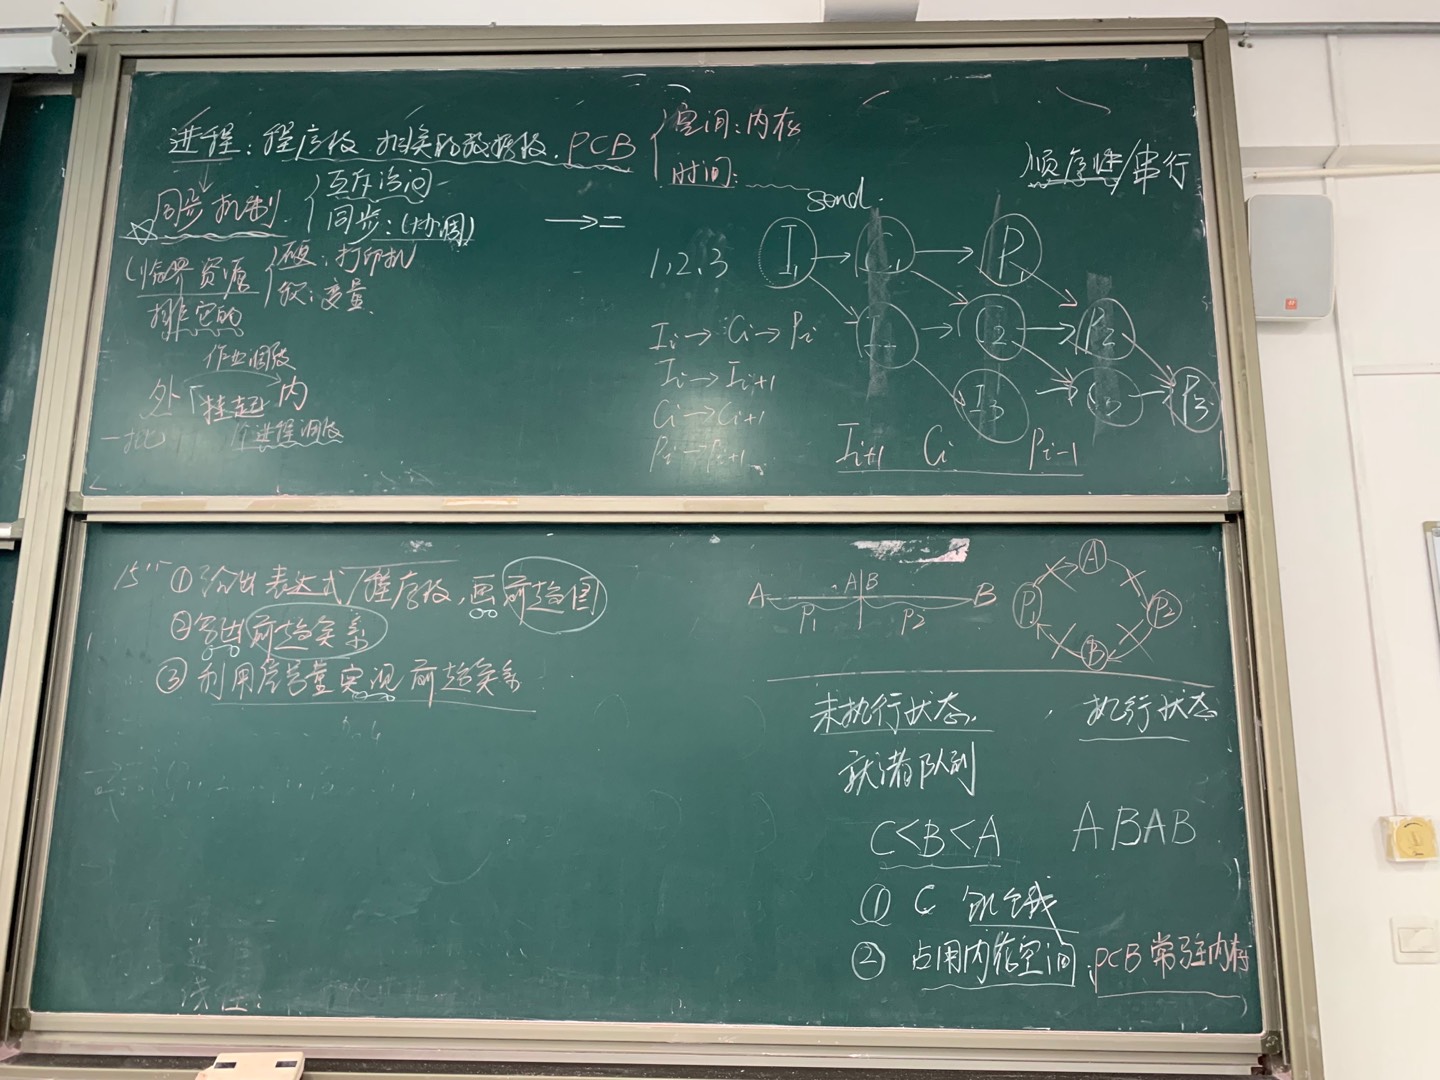 进程：程序段、相关的数据段、PCB { 空间：内存
时间：
同步机制 { 互斥访问
同步：(协调)
→=
临界资源 { 硬：打印机
软：变量
排它的
作业调度
外「挂起」内
一批
个 进程调度
send
顺序性/串行
1, 2, 3
I₁ → C₁ → P₁
I₂ → C₂ → P₂
I₃ → C₃ → P₃
Iᵢ → Cᵢ → Pᵢ
Iᵢ → Iᵢ₊₁
Cᵢ → Cᵢ₊₁
Pᵢ → Pᵢ₊₁
Iᵢ₊₁ Cᵢ Pᵢ₋₁
15'' ① 给出表达式/程序段，画前趋图
② 写出前趋关系
③ 利用信号量实现前趋关系
A A|B B
P₁ P₂
A
P₁ P₂
B
未执行状态、 执行状态
就绪队列
C<B<A ABAB
① C 饥饿
② 占用内存空间、PCB常驻内存